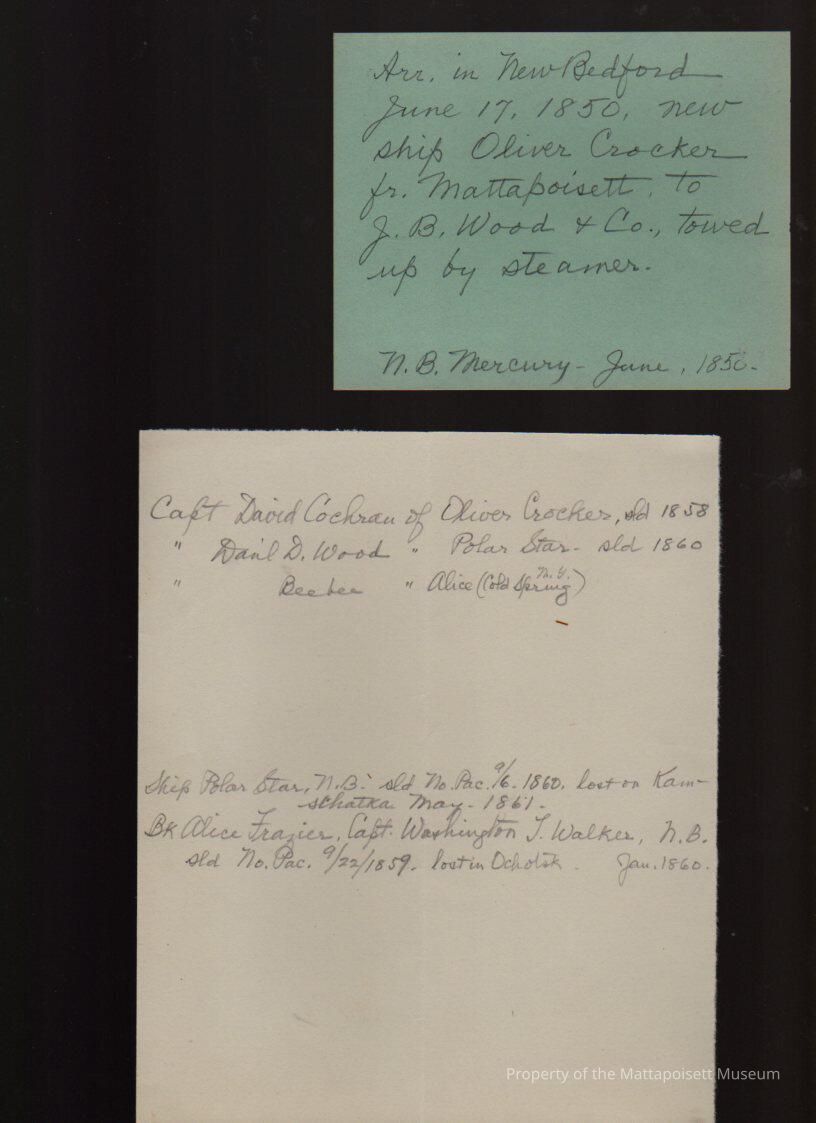 Arr. in New Bedford
June 17, 1850, new
ship Oliver Crocker
fr. Mattapoisett, to
J. B. Wood & Co., towed
up by steamer.
N. B. Mercury - June, 1850.
Capt David Cochran of Oliver Crocker, sld 1858
" Danl D. Wood " Polar Star - sld 1860
" Beebee " Alice (Cold Spring N.Y.)
Ship Polar Star, N.B. sld No. Pac. 9/6. 1860. lost on Kam-
schatka May - 1861.
Bk Alice Frazier, Capt. Washington T. Walker, N.B.
sld No. Pac. 9/22/1859. lost in Ochotsk. Jan. 1860.
Property of the Mattapoisett Museum